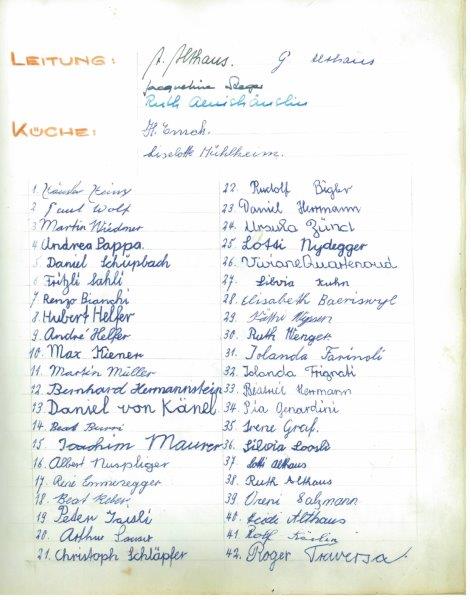 LEITUNG: A. Althaus. G Althaus
Jacqueline Seeger
Ruth Aenishänslin
KÜCHE: H. Emch.
Liselotte Mühlheim.
1. Heinz
2 Paul Wolf
3. Martin Wiedner
4 Andrea Pappa.
5. Daniel Schüpbach
6 Fritzli Sahli
7. Renzo Bianchi
8. Hubert Helfer
9. André Helfer
10. Max Kiener
11. Martin Müller
12. Bernhard Hermannstein
13 Daniel von Känel
14. Beat Burri
15. Joachim Maurer
16. Albert Nuspliger
17. René Emmenegger
18. Beat
19 Peter
20. Arthur
21. Christoph Schläpfer
22. Rudolf Bigler
23. Daniel Herrmann
24. Ursula Zünd
25. Lotti Nydegger
26. Viviane Quartenoud
27. Silvia Kuhn
28. Elisabeth Baeriswyl
29. Käthi Nyssen
30. Ruth Wenger
31. Iolanda Farinoli
32. Iolanda Frignati
33. Beatrice Herrmann
34. Pia Genardini
35. Irene Graf.
36. Silvia Loosli
37. Lotti Althaus
38. Ruth Althaus
39 Vreni Salzmann
40. Althaus
41 Rolf
42. Roger Traversa